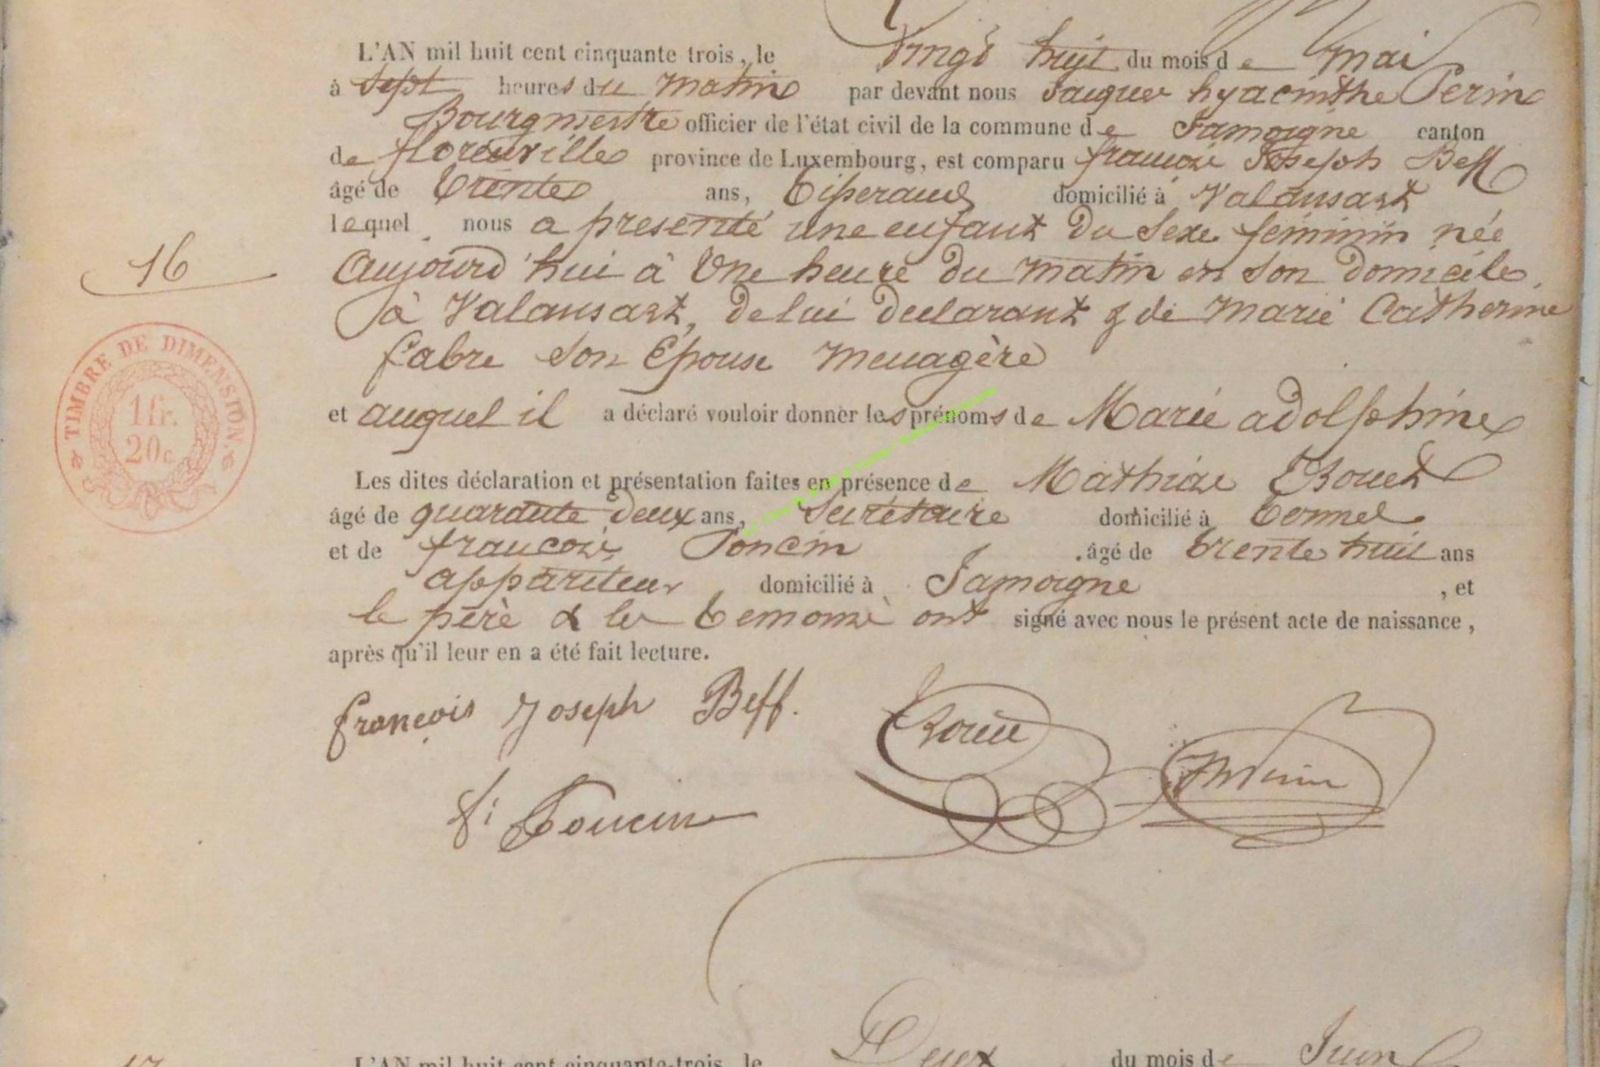 L'AN mil huit cent cinquante trois, le vingt huit du mois de mai
à sept heures du matin par devant nous Jacques hyacinthe Perin
Bourgmestre officier de l'état civil de la commune de Jamoigne canton
de florenville province de Luxembourg, est comparu francois Joseph Beff
âgé de trente ans, Tisserand domicilié à Valansart
lequel nous a presenté une enfant du Sexe féminin née
aujourd'hui à Une heure du matin en son domicile
à Valansart, de lui declarant & de Marie Catherine
fabre son Epouse menagère
16
TIMBRE DE DIMENSION
1 fr.
20c.
et auquel il a déclaré vouloir donner les prénoms de Marie adolphine
Les dites déclaration et présentation faites en présence de Mathias
âgé de quarante deux ans, secrétaire domicilié à
et de francois Poncin âgé de trente huit ans
appariteur domicilié à Jamoigne, et
le père & les temoins ont signé avec nous le présent acte de naissance,
après qu'il leur en a été fait lecture.
françois Joseph Beff.
f: Poncin
L'AN mil huit cent cinquante-trois, le Deux du mois de Juin
17